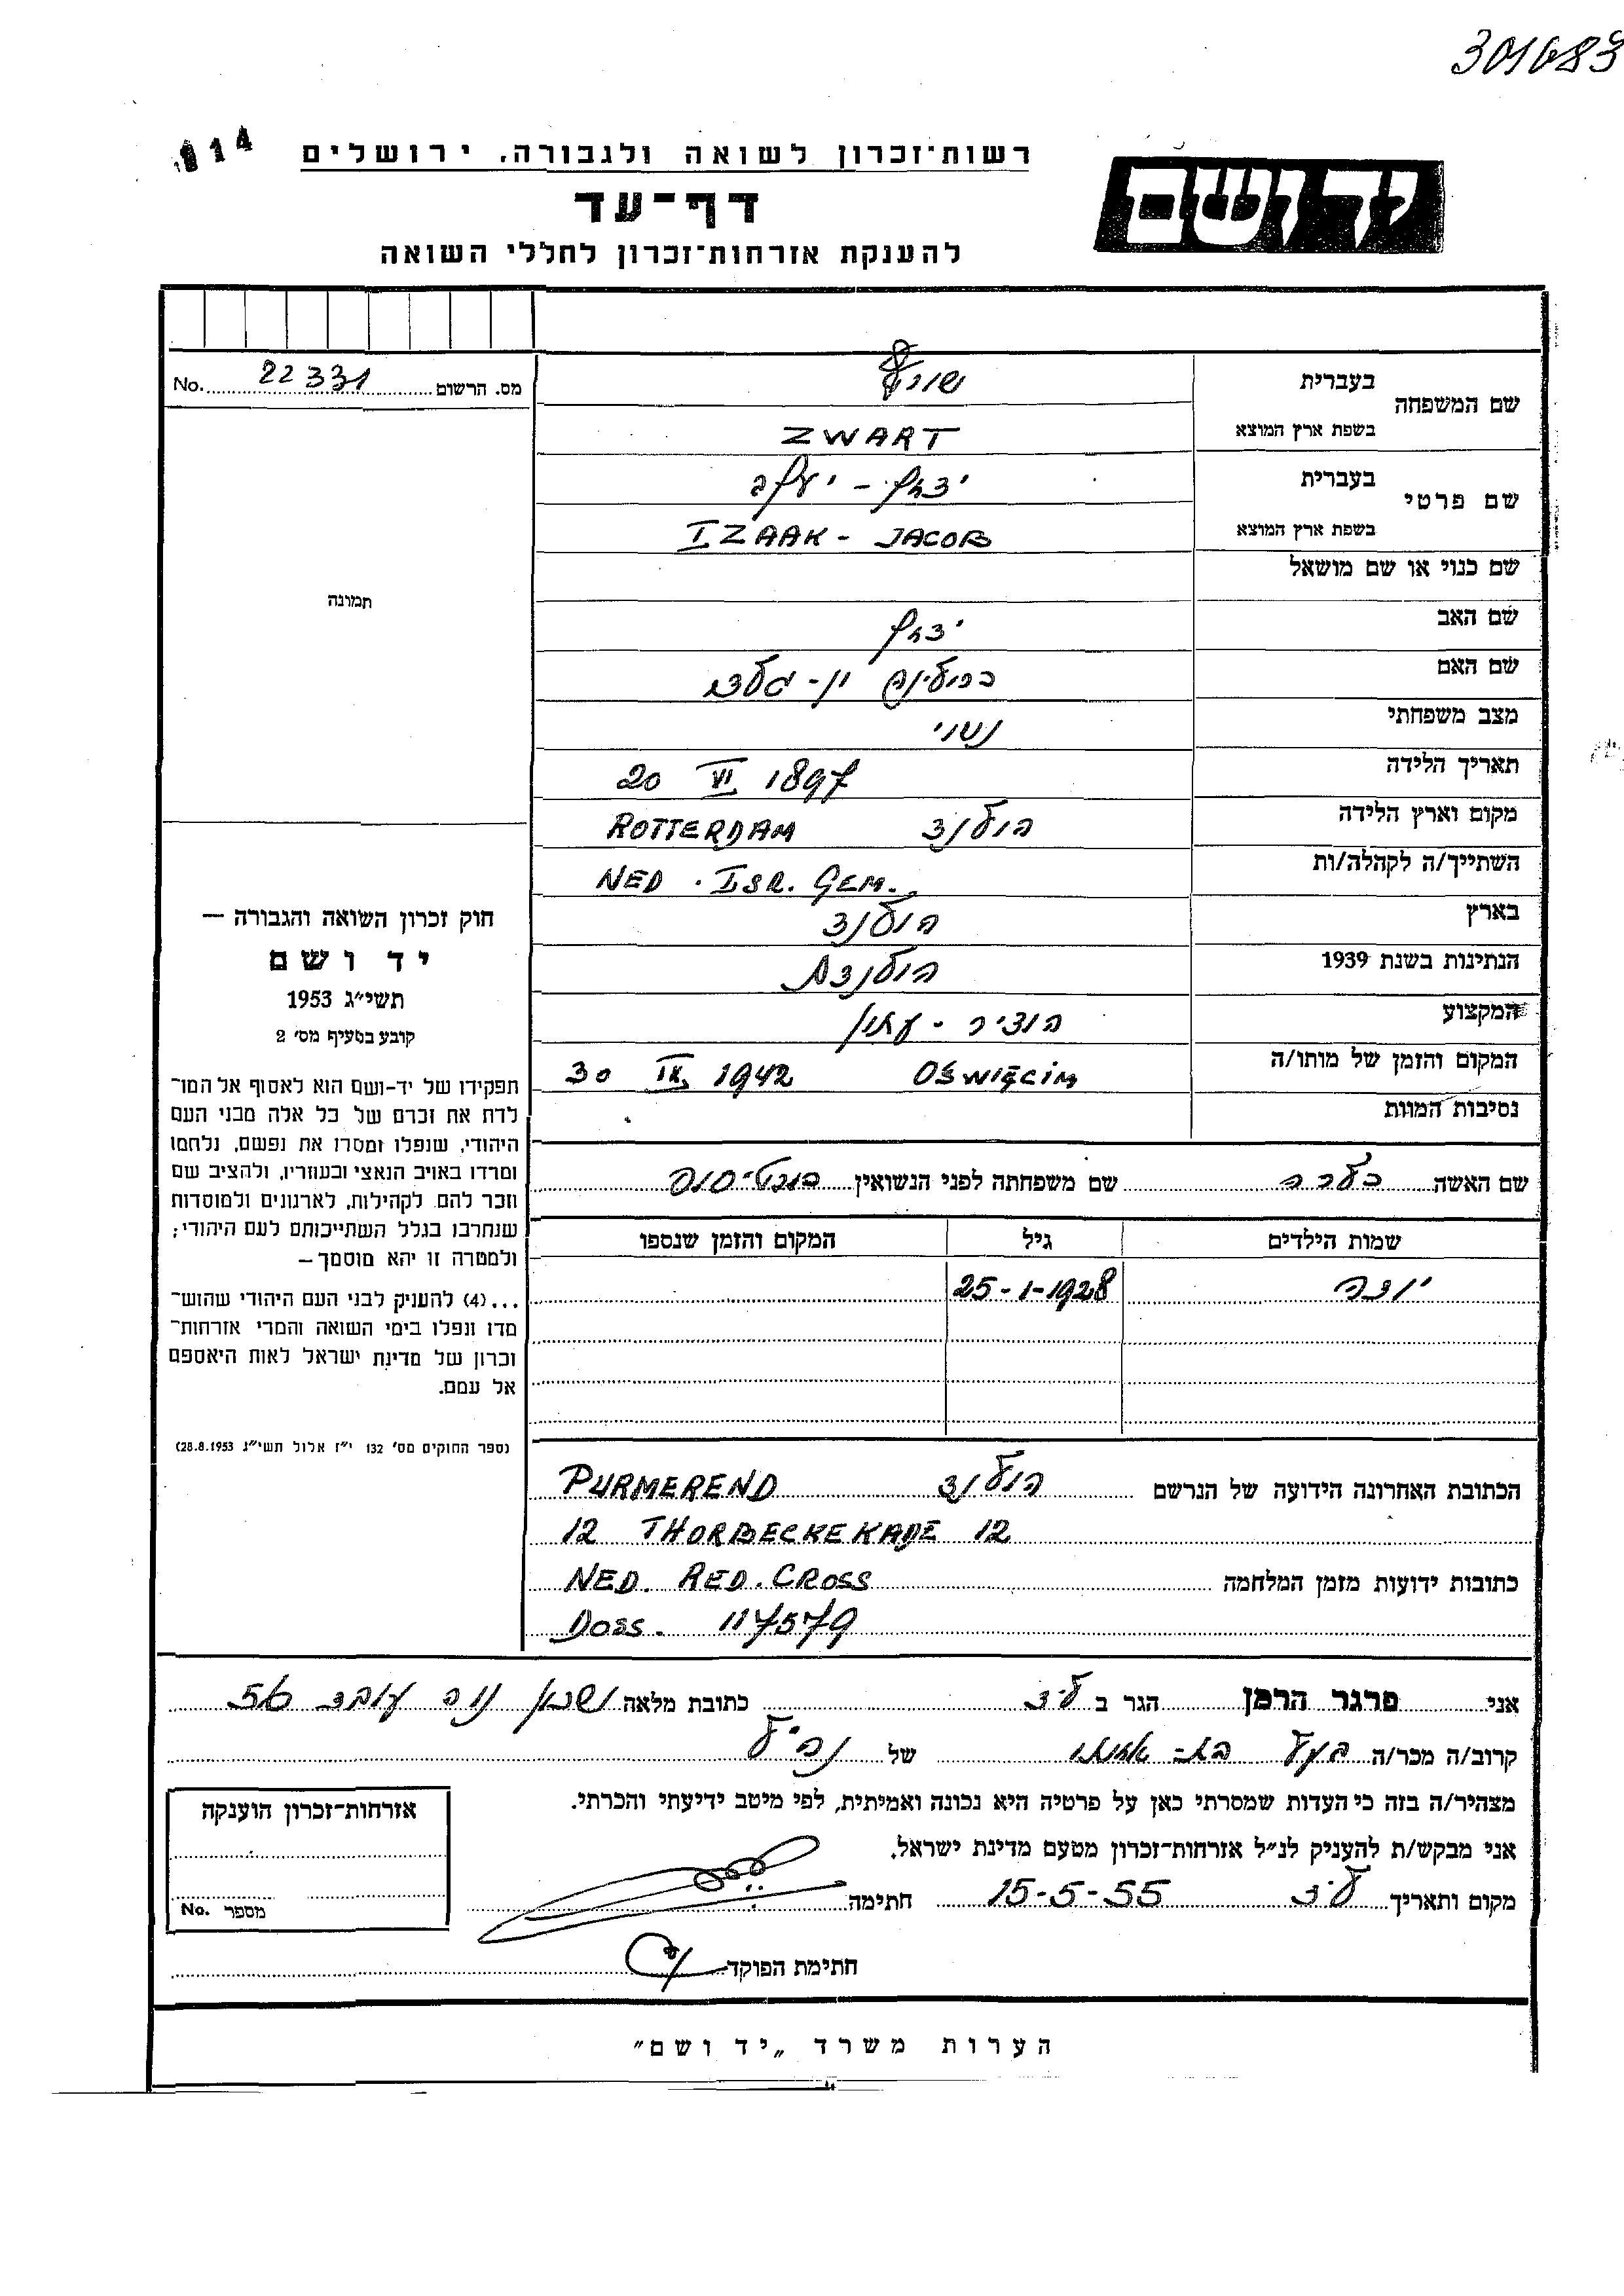 301683
114
רשות-זכרון לשואה ולגבורה, ירושלים
יד ושם
דף-עד
להענקת אזרחות-זכרון לחללי השואה
מס. הרשום 22331 No.
שם המשפחה
בעברית
בשפת ארץ המוצא ZWART
שם פרטי
בעברית יצחק - יעקב
בשפת ארץ המוצא IZAAK - JACOB
שם כנוי או שם מושאל
שם האב יצחק
שם האם
מצב משפחתי נשוי
תאריך הלידה 20 VI 1897
מקום וארץ הלידה הולנד ROTTERDAM
השתייך/ה לקהלה/ות NED. ISR. GEM.
בארץ הולנד
הנתינות בשנת 1939 הולנדית
המקצוע
המקום והזמן של מותו/ה OŚWIĘCIM 30 IX 1942
נסיבות המוות
תמונה
חוק זכרון השואה והגבורה —
יד ושם
תשי״ג 1953
קובע בסעיף מס׳ 2
תפקידו של יד-ושם הוא לאסוף אל המו-
לדת את זכרם של כל אלה מבני העם
היהודי, שנפלו ומסרו את נפשם, נלחמו
ומרדו באויב הנאצי ובעוזריו, ולהציב שם
וזכר להם, לקהילות, לארגונים ולמוסדות
שנחרבו בגלל השתייכותם לעם היהודי;
ולמטרה זו יהא מוסמך—
...(4) להעניק לבני העם היהודי שהוש-
מדו ונפלו בימי השואה והמרי אזרחות-
זכרון של מדינת ישראל לאות היאספם
אל עמם.
(ספר החוקים מס׳ 132 י״ז אלול תשי״ג 28.8.1953)
שם האשה קלרה שם משפחתה לפני הנשואין
שמות הילדים גיל המקום והזמן שנספו
25-1-1928
הכתובת האחרונה הידועה של הנרשם הולנד PURMEREND
12 THORBECKEKADE 12
כתובות ידועות מזמן המלחמה NED. RED. CROSS
DOSS. 117579
אני פרגר הרמן הגר ב לוד כתובת מלאה שכון נוה עובד 56
קרוב/ה מכר/ה בעל בת- אחותו של הנ״ל
מצהיר/ה בזה כי העדות שמסרתי כאן על פרטיה היא נכונה ואמיתית, לפי מיטב ידיעתי והכרתי.
אני מבקש/ת להעניק לנ״ל אזרחות-זכרון מטעם מדינת ישראל.
מקום ותאריך לוד 15-5-55 חתימה
חתימת הפוקד
אזרחות-זכרון הוענקה
מספר No.
הערות משרד „יד ושם״